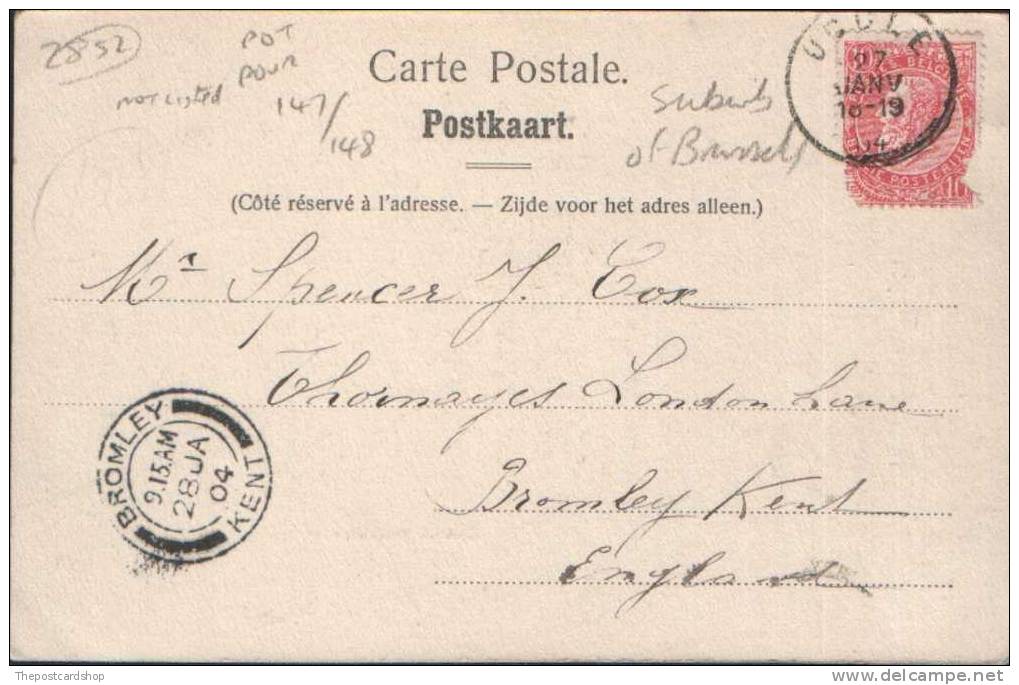 2852
POT
POUR
147/
148
not listed
Carte Postale.
Postkaart.
suburb
of Brussels
UCCLE
27
JANV
18-19
04
BELGIQUE
POSTERIJEN
10
(Côté réservé à l'adresse. — Zijde voor het adres alleen.)
Mr Spencer J. Cox
Thornayes London Lane
Bromley Kent
England
BROMLEY
9.15 AM
28 JA
04
KENT
Thepostcardshop
delcampe.net